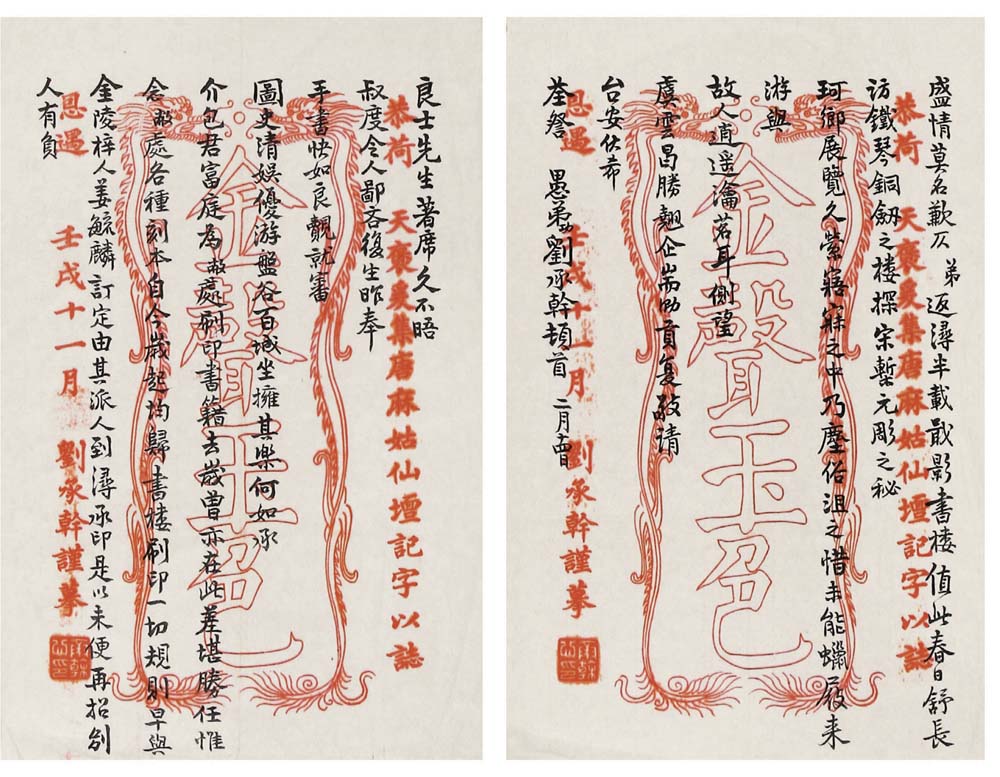 良士先生著席久不晤
叔度令人鄙吝復生昨奉
手書快如良覿就審
圖史清娛優游盤谷百城坐擁其樂何如承
介包君富庭為敝處刷印書籍去歲曾亦在此差堪勝任惟
念敝處各種刻本自今歲起均歸書樓刷印一切規則早與
金陵梓人姜毓麟訂定由其派人到潯承印是以未便再招別
人有負
恭荷 天褒爰集唐麻姑仙壇記字以誌
金聲玉色
恩遇 壬戌十一月 劉承幹謹摹
盛情莫名歉仄 弟返潯半載戢影書樓值此春日舒長
訪鐵琴銅劒之樓探宋槧元彫之秘
珂鄉展覽久縈寤寐之中乃塵俗沮之惜未能蠟屐来
游與
故人逍遥瀹茗耳側望
虞雲曷勝翹企耑泐肅复敬請
台安伏希
荃詧 愚弟劉承幹頓首 二月十四日
恭荷 天褒爰集唐麻姑仙壇記字以誌
金聲玉色
恩遇 壬戌十一月 劉承幹謹摹